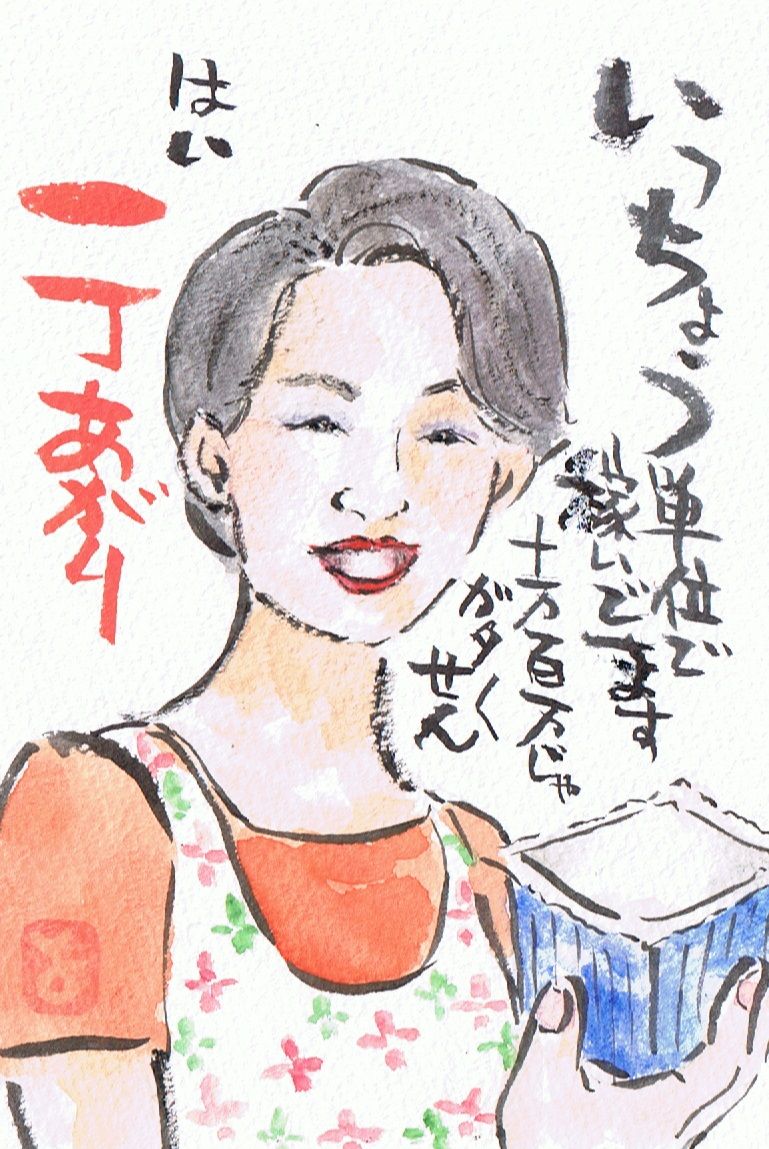 いっちょう単位で
稼いでます
十万百万じゃ
せん
はい
一丁あがり